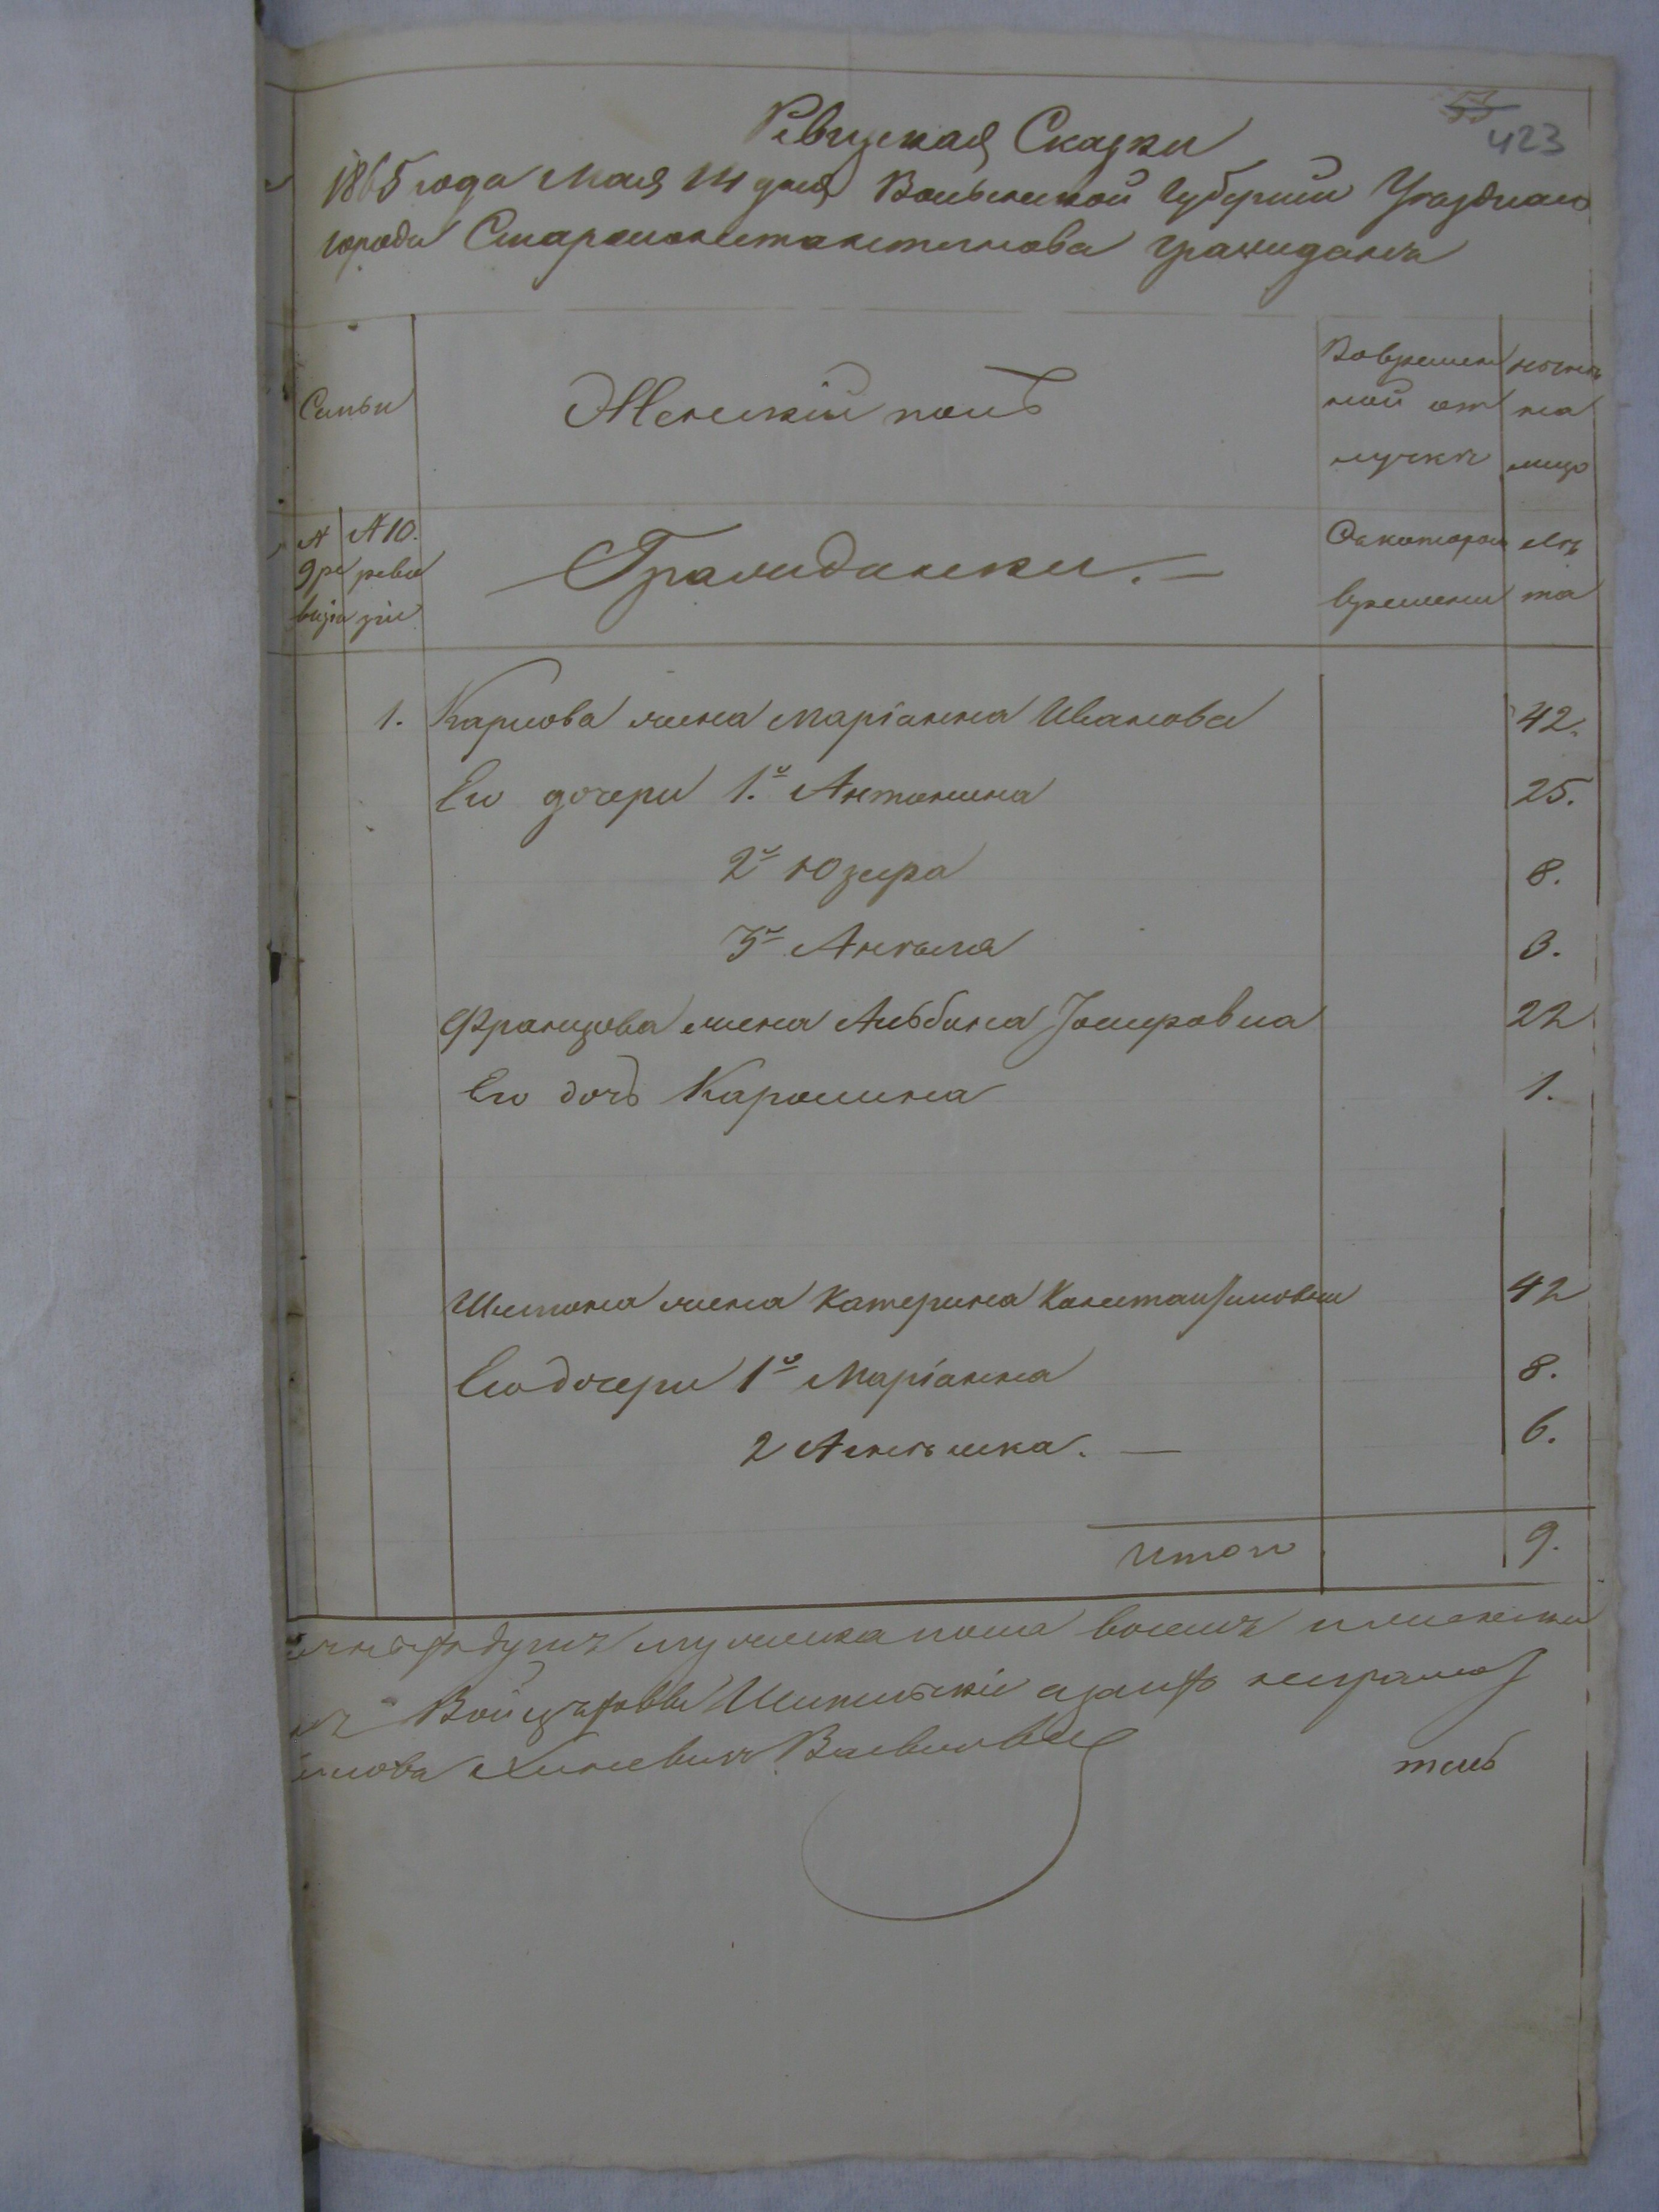 53
423
Ревизская Сказки
1865 года Мая 14 дня Волынской Губернии Уезднаго
города Староконстантинова гражданъ
Семьи
Женскій полъ
Вовремен
ной от
лучкѣ
нынѣ
на
лицо
№
9 ре
визіи
№ 10.
реви
зіи
Гражданки. —
Съ котораго
времени
лѣ
та
1. Карлова жена Маріанна Иванова 42.
Его дочери 1.я Антонина 25.
2я Юзефа 8.
3я Ангеля 3.
Францова жена Альбина Іосифовна 22
Его дочь Каролина 1.
жена Катерина Константиновна 42
Его дочери 1я Маріанна 8.
2 6.
Итого 9.
душъ мужеска пола восемъ и женска
неграмот
тенъ